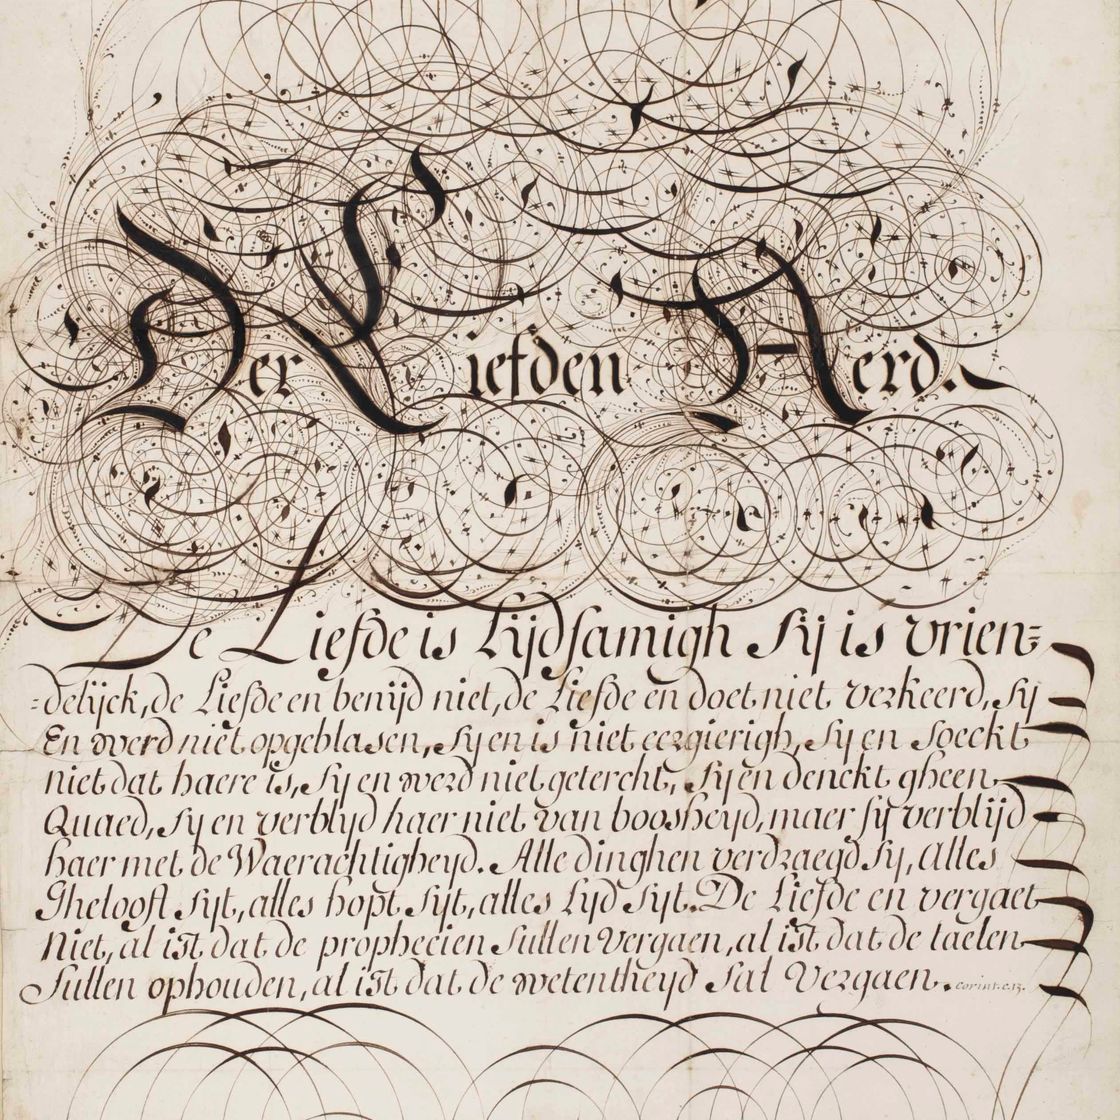 Der Liefden Aerd.
De Liefde is Lijdsamigh Sij is vrien=
=delijck, de Liefde en benijd niet, de Liefde en doet niet verkeerd, Sij
En werd niet opgeblasen, Sy en is niet eergierigh, Sy en Soeckt
niet dat haere is, Sy en werd niet getercht, Sy en denckt gheen
Quaed, Sy en verblyd haer niet van boosheyd, maer Sij verblijd
haer met de Waerachtigheyd. Alle dinghen verdraegd Sy, Alles
Ghelooft Syt, alles hopt Syt, alles Lyd Syt. De Liefde en vergaet
Niet, al ist dat de prophecien Sullen Vergaen, al ist dat de taelen
Sullen ophouden, al ist dat de wetentheyd Sal Vergaen. Corint. c. 13.